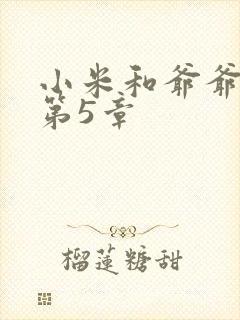 小米和爷爷
第5章
榴莲糖甜